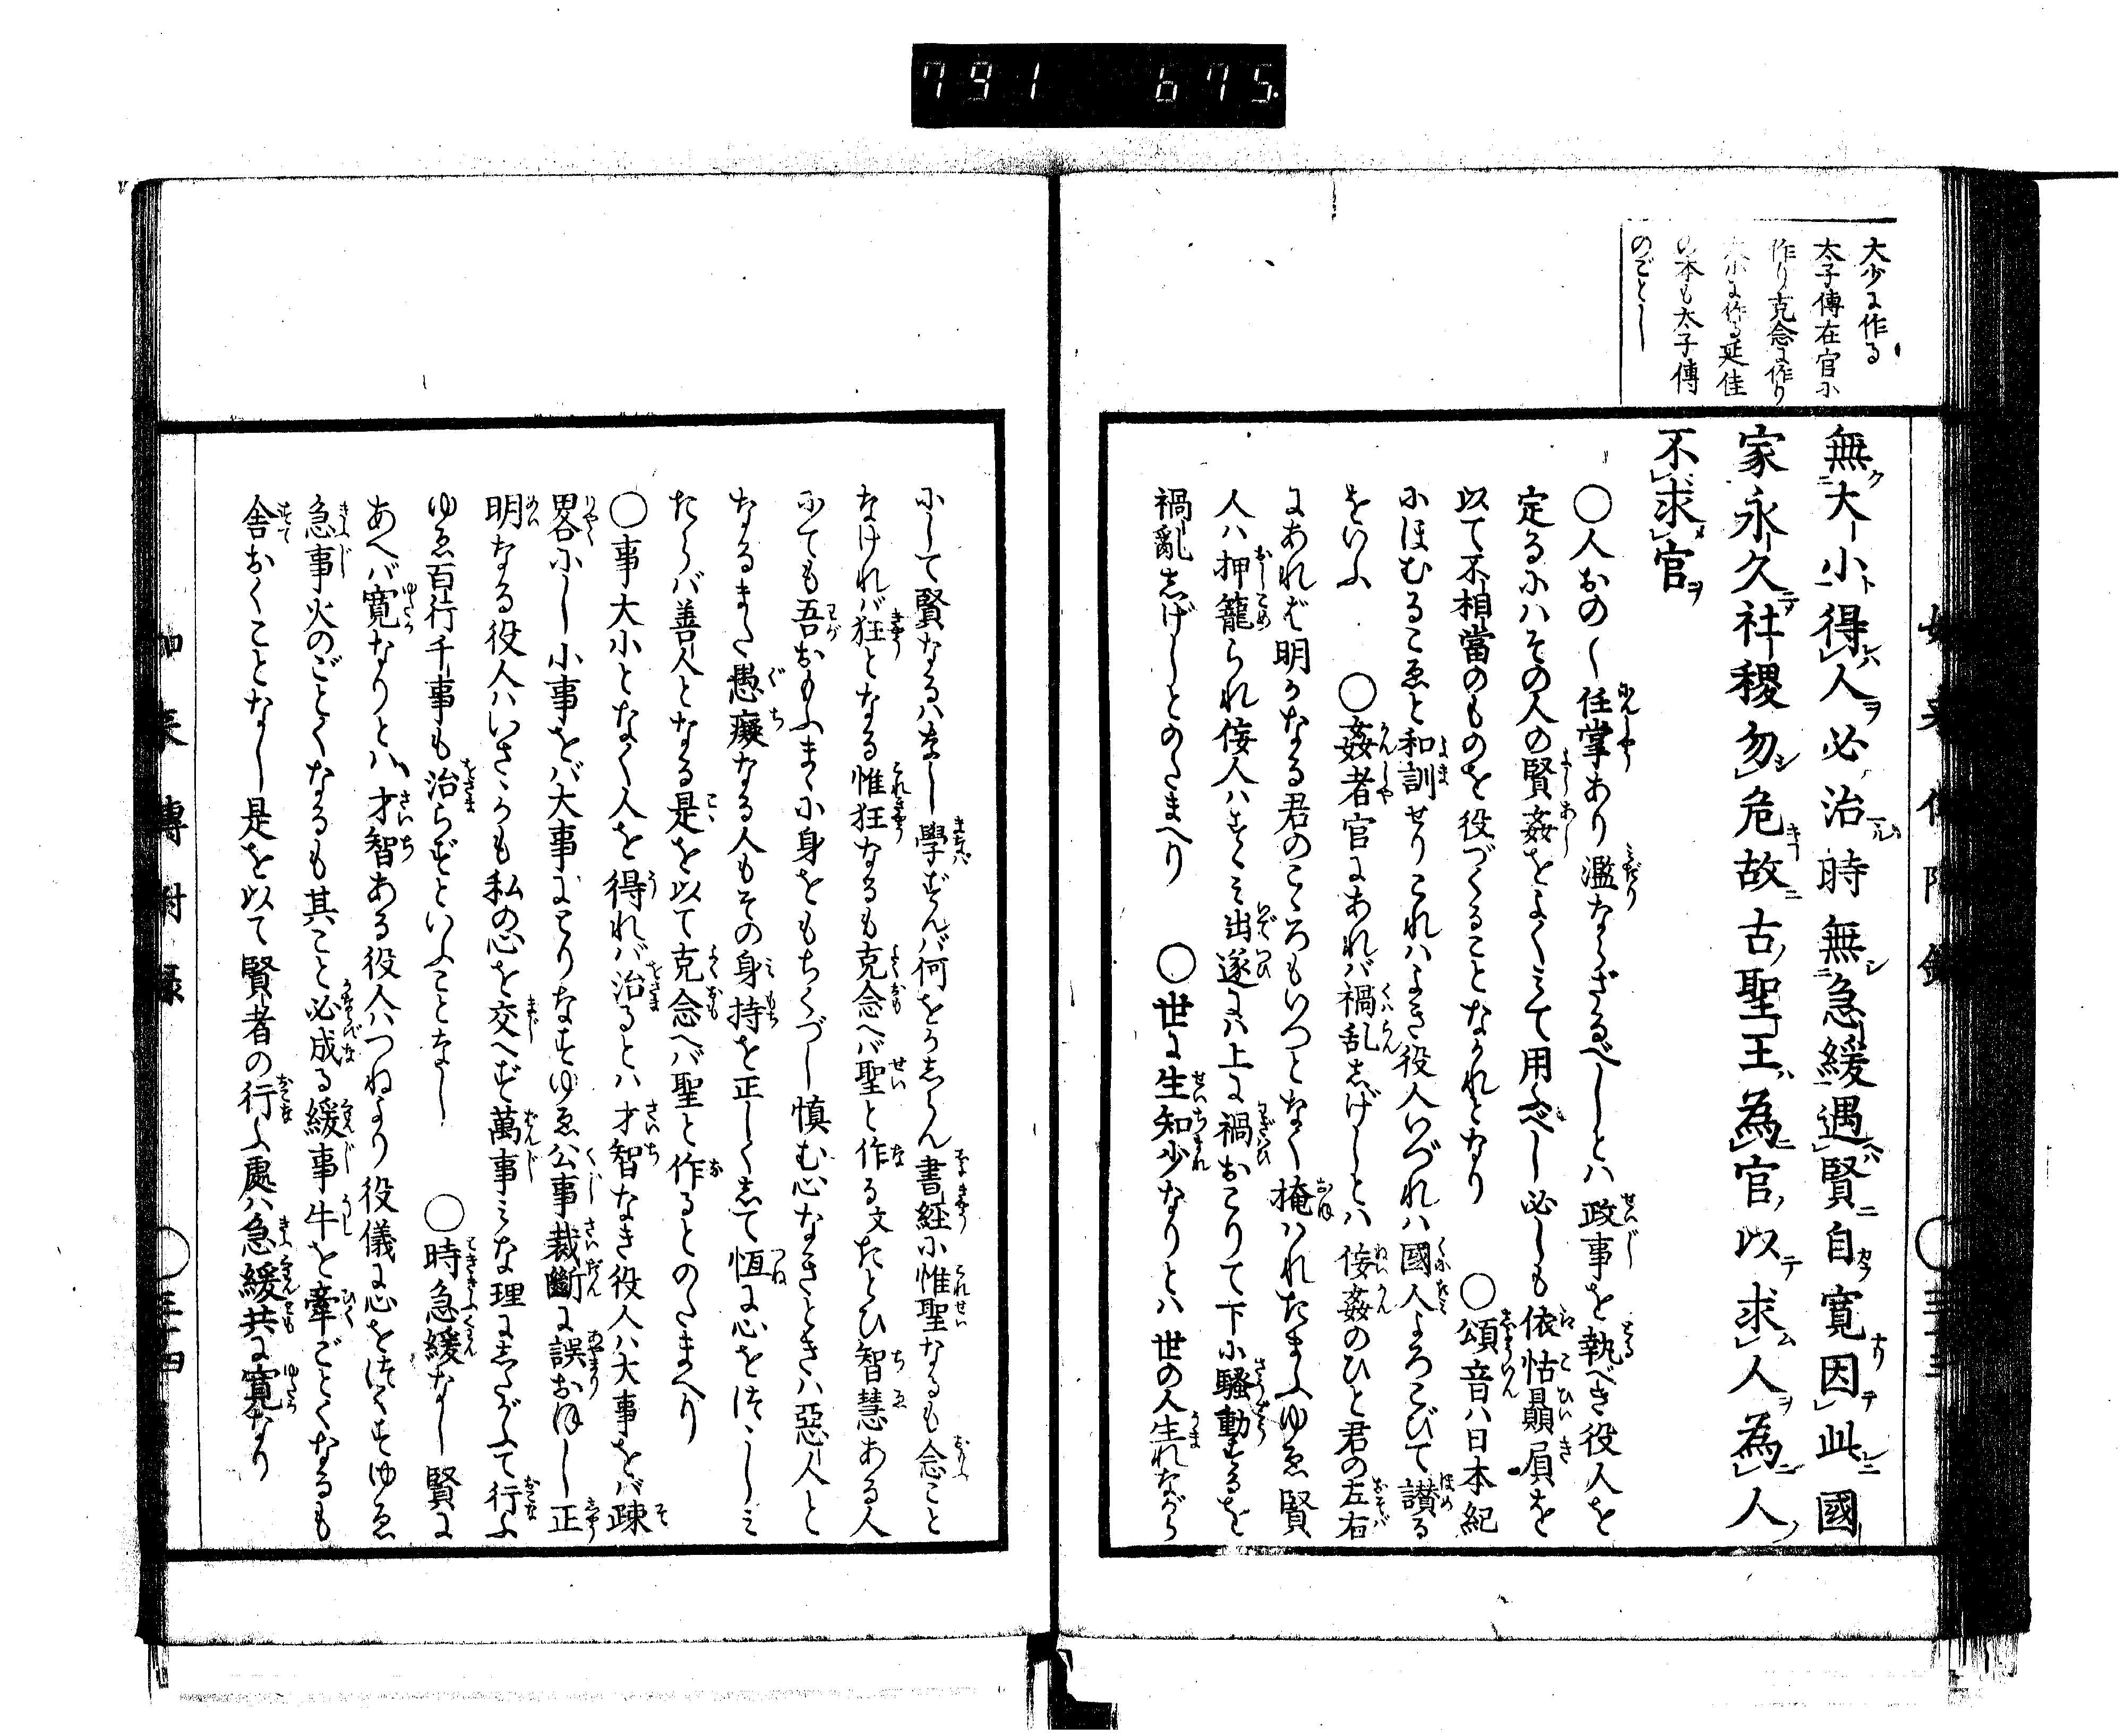 791 675.
大少に作る
太子傳在官に
作り克念に作り
大小に作る延佳
の本も太子傳
のごとし
無大小得人必治時無急緩遇賢自寛因此國
家永久社稷勿危故古聖王為官以求人為人
不求官
○人おの〱任掌あり濫ならざるべしとハ政事を執べき役人を
定るにハその人の賢姦をよくミて用ふべし必しも依怙贔屓を
以て不相當のものを役づくることなかれとなり　○頌音ハ日本紀
にほむるこゑと和訓せりこれハよき役人いづれハ國人よろこびて讃る
をいふ　○姦者官にあれバ禍乱しげしとハ佞姦のひと君の左右
にあれバ明かなる君のこゝろもいつとなく掩ハれたまふゆゑ賢
人ハ押籠られ佞人ハすゝミ出遂にハ上に禍おこりて下に騒動するを
禍亂しげしとのたまへり　○世に生知少なりとハ世の人生れながら
にして賢なるハなし學ずんバ何をかしらん書経に惟聖なるも念こと
なけれバ狂となる惟狂なるも克念ヘバ聖と作る文たとひ智慧ある人
にても吾おもふまゝに身をもちくづし慎む心なきときハ惡人と
なるまた愚癡なる人もその身持を正しくして恒に心をつゝしミ
たらバ善人となる是を以て克念へバ聖と作るとのたまへり
○事大小となく人を得れバ治るとハ才智なき役人ハ大事をバ疎
畧にし小事をバ大事にとりなすゆゑ公事裁斷に誤おほし正
明なる役人ハいさゝかも私の心を交へず萬事ミな理にしたがふて行ふ
ゆゑ百行千事も治らずといふことなし　○時急緩なし賢に
あへバ寛なりとハ才智ある役人ハつねより役儀に心をつくすゆゑ
急事火のごとくなるも其こと必成る緩事牛を牽ごとくなるも
舎おくことなし是を以て賢者の行ふ處ハ急緩共に寛なり